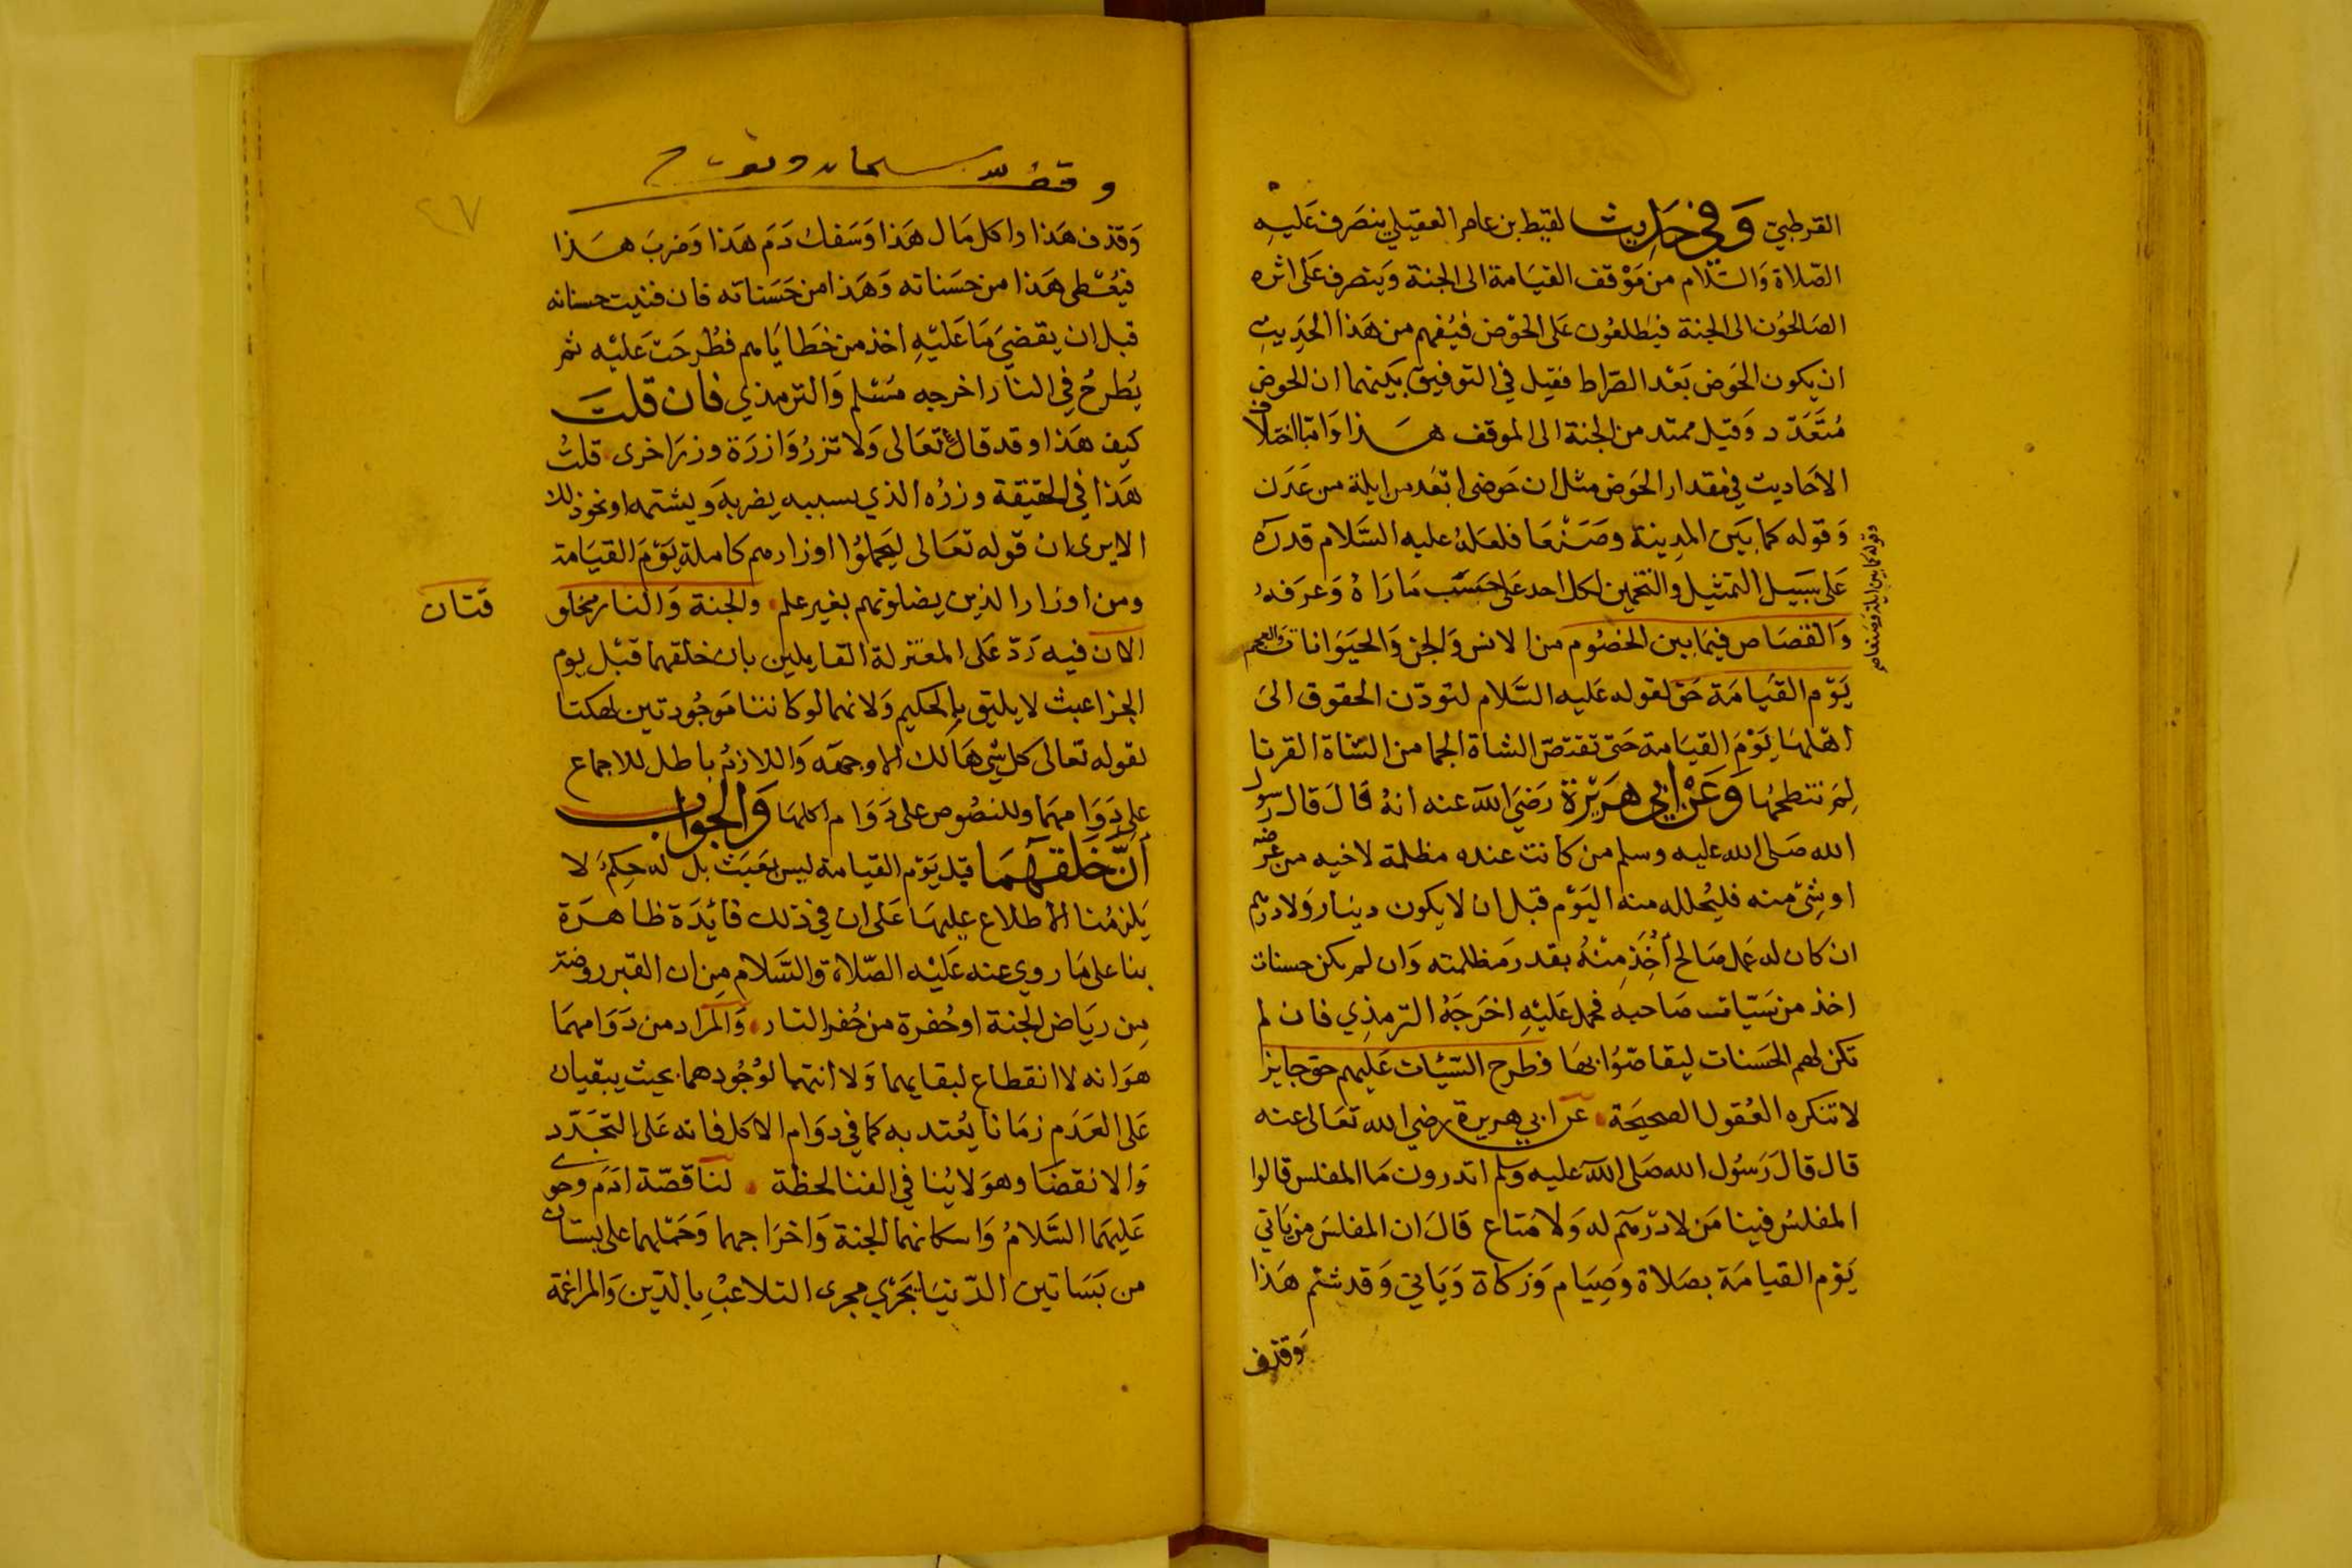 القرطبي وَفي حَدِيث لقيط بن عامر العقيلي ينصَرف عَليهِ
الصّلاة وَالسّلام من مَوْقف القيَامة الى الجنة وَينصرف عَلى اثره
الصَالحُون الى الجنة فيَطلعُون عَلى الحوْض فيُفهم من هَذا الحَدِيثِ
ان يكون الحَوض بَعْد الصّراط فقيل في التوفيق بَينهما ان الحوض
مُتَعَدّد وَقيل ممتد من الجنة الى الموقف هَذا وَامّا اختلاف
الاحَاديث في مقدار الحَوض مثل ان حَوضي ابْعَد من ايلة من عَدَن
وَقوله كما بَين المدِينة وصَنْعَا فلعَلهُ عليه السَّلام قدرَهُ
عَلى سَبيَل التمثيل والتخمين لكل احد عَلى حَسَب مَا رَاهُ وَعرَفهُ
وقوله كما بين ايلة وصنعا صح
وَالقصَاص فيمَا بين الخصُوم من الانس وَالجن وَالحيَوَانات وَالعجم
يَوْم القيَامَة حَق لقوله عَليه السَّلام لتودّن الحقوق الىَ
اهْلهَا يَوْمَ القيَامة حَتى تقتصّ الشاة الجما من الشاة القرنا
لِمَ نتطحهَا وَعَنْ ابي هرَيْرَة رَضيَ الله عنه انهُ قَالَ قال رسول
الله صَلى الله عليه وسلم من كانت عنده مظلمة لاخيه من عرضه
او شئ منه فليُحلله منه اليَوْم قبل ان لا يكون دينار وَلا درهم
ان كان له عَمل صَالح أُخِذ مِنْهُ بقدر مَظلمته وَان لم يكن حسنات
اخذ من سَيّات صَاحبه فحمل عَليْهِ اخرَجَهُ الترمذِي فان لم
تكن لهم الحَسَنات ليقاصّوُا بهَا فطَرح السّيئات عَليهم حق جايز
لا تنكره العُقول الصحيحَة عَن ابي هريرة رضي الله تعَالى عنه
قال قالَ رَسُول الله صَلى الله عليه وسلم اتدرون مَا المفلس قالوا
المفلسُ فينا مَن لا درْهَم له وَلا مَتاع قالَ ان المفلسَ من يَاتي
يَوْم القيامَة بصَلاة وَصِيَام وَزكاة وَيَاتي وَقد شتم هَذا
وَقذف
وقصَ سليمان
٢٧
وَقذف هَذا واكل مَال هَذا وَسَفك دَمَ هَذا وَضربَ هَذا
فيُعْطى هَذا من حسَناته وَهَذا من حَسَناته فان فنيت حسناته
قبل ان يقضيَ مَا عَليْهِ اخذ من خطايَاهم فطُرحَت عَليْه ثمر
يُطرحُ فِي النار اخرجه مسْلم وَالترمذي فَان قلتَ
كيف هَذا وقد قال تعَالى وَلا تزرُ وَازرَة وزرَ اخرى قلتُ
هَذا في الحقيقة وزرُه الذي بسببه يضربه وَيشتمه او نحو ذلك
الا يرى ان قوله تعَالى ليَحملوُا اوزارهم كاملة يَوْمَ القيَامة
ومن اوزار الذين يضلونهم بغير علم والجنة وَالنار مخلو
قتان
الان فيه رَدّ عَلى المعتزلة القايلين بان خلقهما قبْل يوم
الجزا عبث لا يليق بالحكيم وَلانهما لو كانتا مَوجُودتين لهلكتا
لقوله تعَالى كل شَي هَالك الا وجهَه وَاللازمُ باطل للاجماع
على دَوَامهمَا وللنصُوص على دَوَام اكلهَا وَالجوابُ
أنّ خَلقهُمَا قبل يَوْم القيامة ليس بعَبَث بل له حِكمُ لا
يَلزمُنا الاطلاع عليهَا عَلى ان في ذلك فائِدَة ظاهرَة
بنا على مَا روي عنه عَليْه الصّلاة وَالسَّلام مِن ان القبر روضة
مِن ريَاض الجنة او حُفرة من حُفر النار وَالمرَاد من دَوَامهمَا
هوَ انه لا انقطاع لبقايهما وَلا انتها لوُجُودهما بحيث يبقيان
عَلى العَدَم زمَانا يُعتد به كما في دوَام الاكل فانه عَلى التجَدّد
وَالانقضَا وهوَ لا يُنافي الفنا لحظة لنا قصّة ادَم وحوى
عَليهمَا السَّلامُ وَاسكانهما الجنة وَاخرَاجهما وَحَمْلهما على بستان
من بَسَاتين الدّنيَا يجرَي مجرى التلاعُبِ بالدّين وَالمراغمة